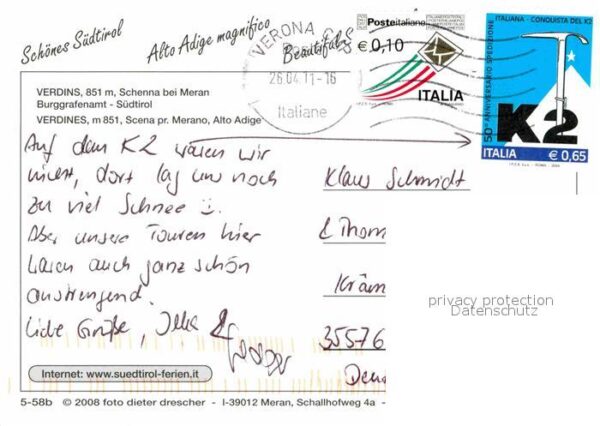 Schönes Südtirol
Alto Adige magnifico
Beautiful S
VERONA
26.04.11-16
Italiane
Posteitaliane
€ 0,10
ITALIA
ITALIANA - CONQUISTA DEL K2
50° ANNIVERSARIO SPEDIZIONE
K2
ITALIA € 0,65
VERDINS, 851 m, Schenna bei Meran
Burggrafenamt - Südtirol
VERDINES, m 851, Scena pr. Merano, Alto Adige
Auf dem K2 waren wir
nicht, dort lag uns noch
zu viel Schnee
Aber unsere Touren hier
waren auch ganz schön
anstrengend.
Liebe Grüße,
Klaus Schmidt
& Thom
Kräm
35576
Deu
privacy protection
Datenschutz
Internet: www.suedtirol-ferien.it
5-58b © 2008 foto dieter drescher - I-39012 Meran, Schallhofweg 4a -